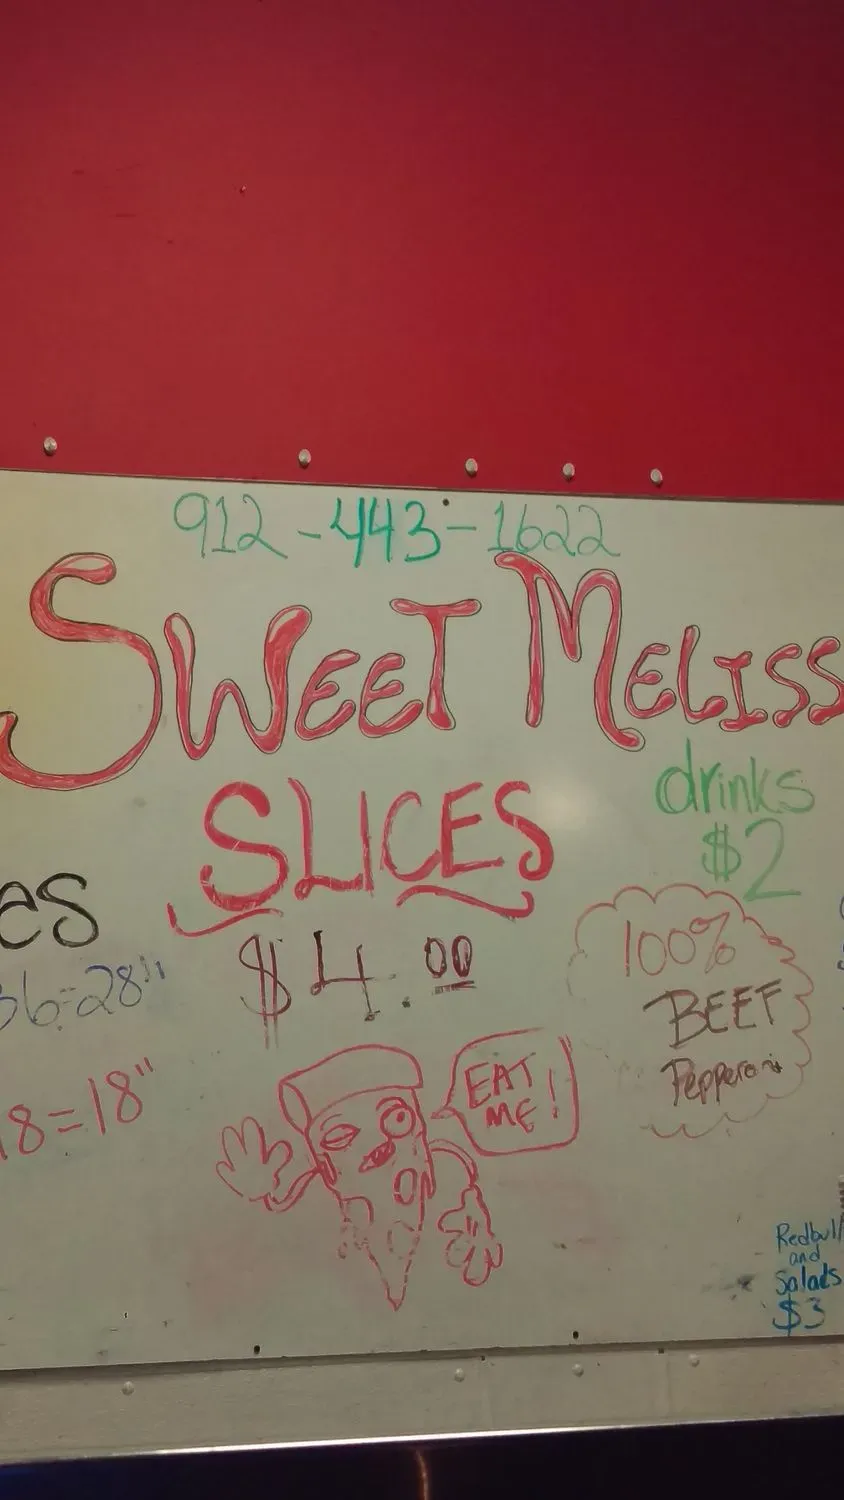 912-443-1622
SWEET MELISS
SLICES
$4.00
drinks
$2
es
36=28"
18=18"
100%
BEEF
Pepperoni
EAT
ME!
Redbull
and
Salads
$3